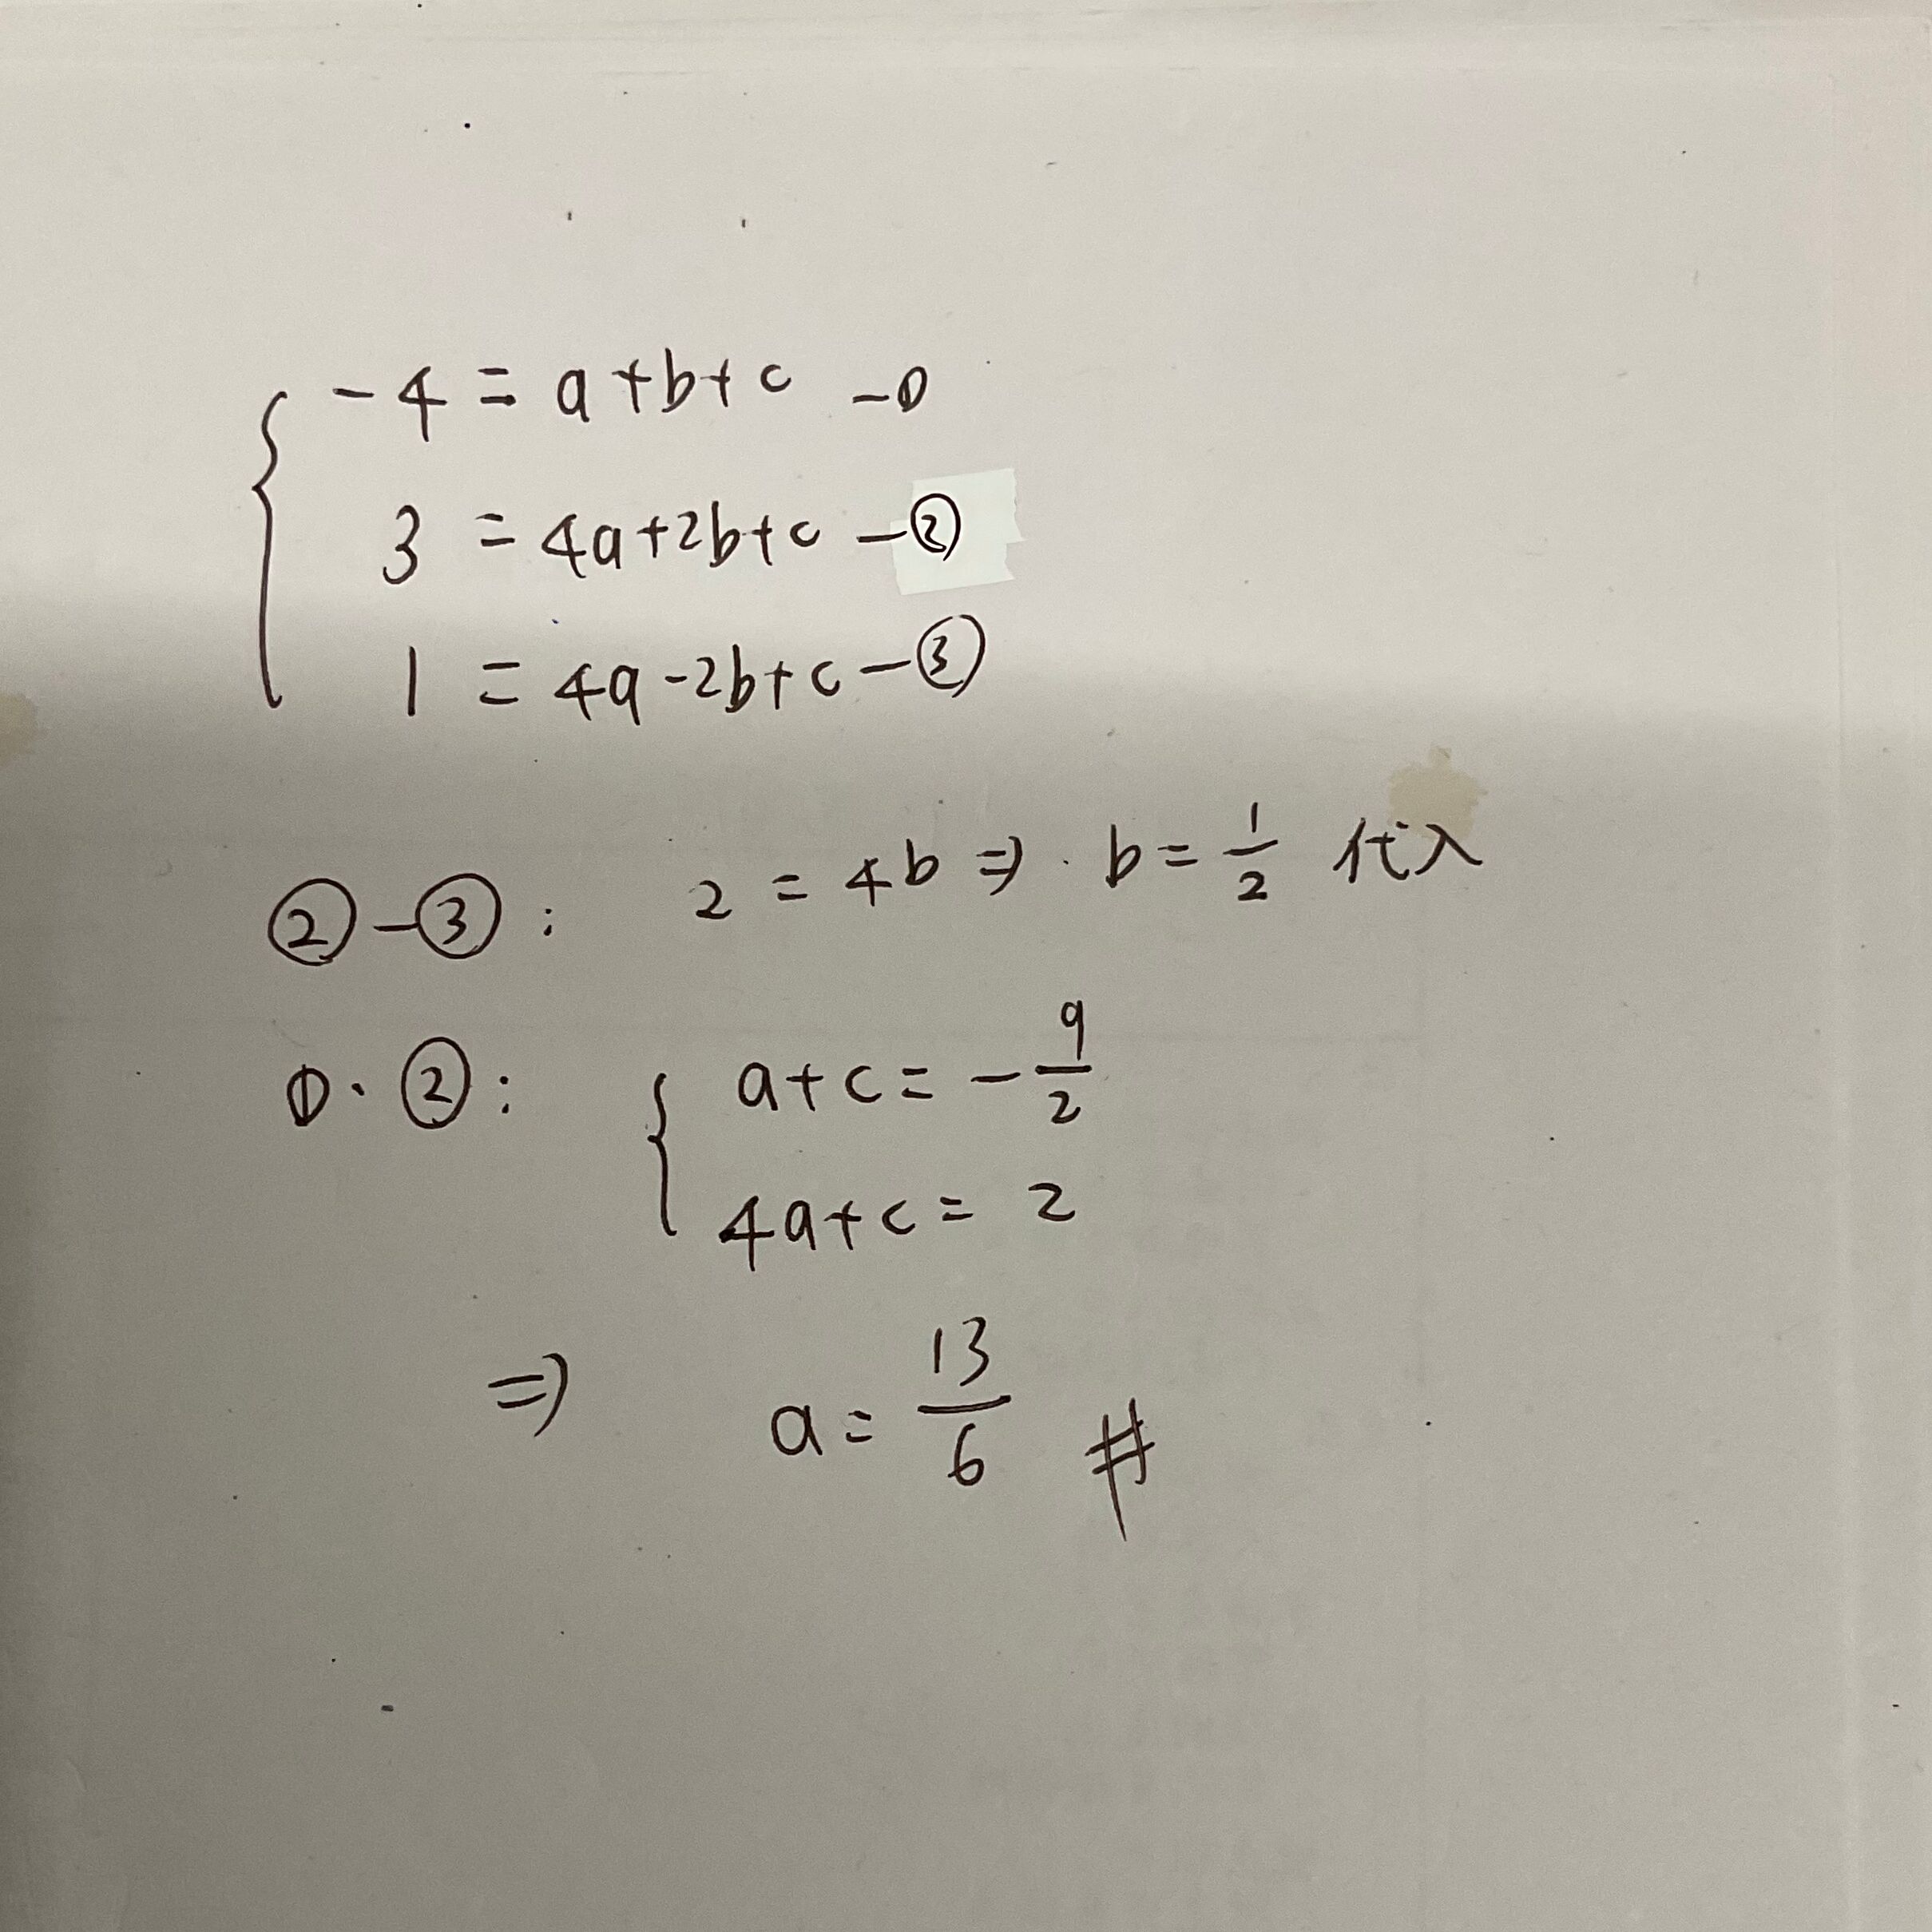 -4 = a+b+c -①
3 = 4a+2b+c -②
1 = 4a-2b+c -③
②-③: 2 = 4b ⇒ b = 1/2 代入
①.②: { a+c = -9/2
4a+c = 2
⇒ a = 13/6 #